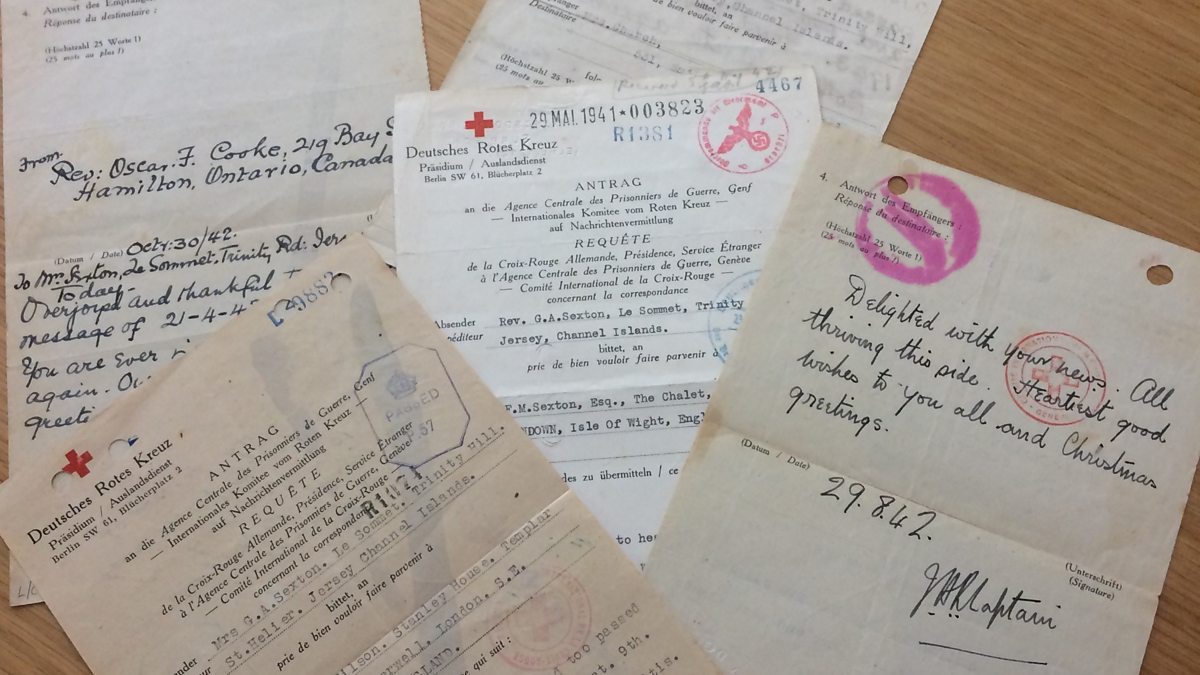 4. Antwort des Empfängers
Réponse du destinataire :
(Höchstzahl 25 Worte !)
(25 mots au plus !)
From.
Rev: Oscar. F. Cooke, 219 Bay
Hamilton, Ontario, Canada
(Datum / Date) Octr: 30/42.
To Mr. Sexton, Le Sommet, Trinity Rd:
Today-
Overjoyed and thankful
message of 21-4-4
You are ever
again.
Destinataire
(Höchstzahl 25
(25 mots
de bien vouloir faire parvenir à
Channel Islands.
Trinity Hill,
29. MAI. 1941 * 003823
4467
R1381
Deutsches Rotes Kreuz
Präsidium / Auslandsdienst
Berlin SW 61, Blücherplatz 2
ANTRAG
an die Agence Centrale des Prisonniers de Guerre, Genf
— Internationales Komitee vom Roten Kreuz —
auf Nachrichtenvermittlung
REQUÊTE
de la Croix-Rouge Allemande, Présidence, Service Étranger
à l'Agence Centrale des Prisonniers de Guerre, Genève
— Comité International de la Croix-Rouge —
concernant la correspondance
Absender Rev. G.A.Sexton, Le Sommet, Trinity
Jersey, Channel Islands.
bittet, an
prie de bien vouloir faire parvenir à
F.M.Sexton, Esq., The Chalet,
NDOWN, Isle Of Wight,
des zu übermitteln / ce
4. Antwort des Empfängers :
Réponse du destinataire :
(Höchstzahl 25 Worte !)
(25 mots au plus !)
Delighted with your news. All
thriving this side. Heartiest good
wishes to you all and Christmas
greetings.
(Datum / Date)
29.8.42.
(Unterschrift)
(Signature)
PASSED
P.57
Deutsches Rotes Kreuz
Präsidium / Auslandsdienst
Berlin SW 61, Blücherplatz 2
ANTRAG
an die Agence Centrale des Prisonniers de Guerre, Genf
— Internationales Komitee vom Roten Kreuz —
auf Nachrichtenvermittlung
REQUÊTE
de la Croix-Rouge Allemande, Présidence, Service Étranger
à l'Agence Centrale des Prisonniers de Guerre, Genève
— Comité International de la Croix-Rouge —
concernant la correspondance
Mrs G.A.Sexton, Le Sommet, Trinity Hill.
St.Helier. Jersey Channel Islands.
bittet, an
prie de bien vouloir faire parvenir à
Stanley House. Templar
London. S.E.
ce qui suit :
too passed
9th.